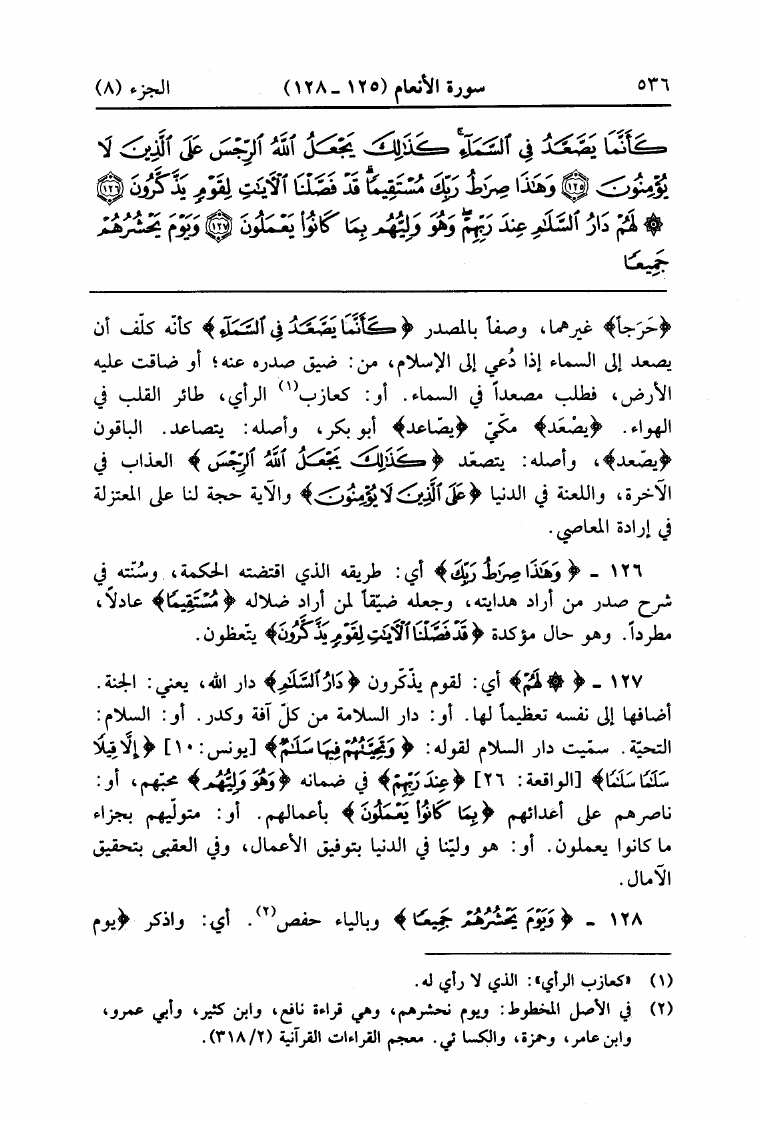 ٥٣٦ سورة الأنعام (١٢٥ - ١٢٨) الجزء (٨)
كَأَنَّمَا يَصَّعَّدُ فِي السَّمَآءِ ۚ كَذَٰلِكَ يَجْعَلُ اللَّهُ الرِّجْسَ عَلَى الَّذِينَ لَا
يُؤْمِنُونَ ﴿١٢٥﴾ وَهَٰذَا صِرَاطُ رَبِّكَ مُسْتَقِيمًا ۗ قَدْ فَصَّلْنَا الْآيَاتِ لِقَوْمٍ يَذَّكَّرُونَ ﴿١٢٦﴾
۞ لَهُمْ دَارُ السَّلَامِ عِندَ رَبِّهِمْ ۖ وَهُوَ وَلِيُّهُم بِمَا كَانُوا يَعْمَلُونَ ﴿١٢٧﴾ وَيَوْمَ يَحْشُرُهُمْ
جَمِيعًا
﴿حَرَجاً﴾ غيرهما، وصفاً بالمصدر ﴿كَأَنَّمَا يَصَّعَّدُ فِي السَّمَآءِ﴾ كأنّه كلّف أن
يصعد إلى السماء إذا دُعي إلى الإسلام، من: ضيق صدره عنه؛ أو ضاقت عليه
الأرض، فطلب مصعداً في السماء. أو: كعازب(١) الرأي، طائر القلب في
الهواء. ﴿يصْعَد﴾ مكّيّ ﴿يصّاعد﴾ أبو بكر، وأصله: يتصاعد. الباقون
﴿يصّعد﴾، وأصله: يتصعّد ﴿كَذَٰلِكَ يَجْعَلُ اللَّهُ الرِّجْسَ﴾ العذاب في
الآخرة، واللعنة في الدنيا ﴿عَلَى الَّذِينَ لَا يُؤْمِنُونَ﴾ والآية حجة لنا على المعتزلة
في إرادة المعاصي.
١٢٦ - ﴿وَهَٰذَا صِرَاطُ رَبِّكَ﴾ أي: طريقه الذي اقتضته الحكمة، وسُنّته في
شرح صدر من أراد هدايته، وجعله ضيّقاً لمن أراد ضلاله ﴿مُسْتَقِيمًا﴾ عادلاً،
مطرداً. وهو حال مؤكدة ﴿قَدْ فَصَّلْنَا الْآيَاتِ لِقَوْمٍ يَذَّكَّرُونَ﴾ يتّعظون.
١٢٧ - ﴿۞ لَهُمْ﴾ أي: لقوم يذّكّرون ﴿دَارُ السَّلَامِ﴾ دار الله، يعني: الجنة.
أضافها إلى نفسه تعظيماً لها. أو: دار السلامة من كلّ آفة وكدر. أو: السلام:
التحيّة. سمّيت دار السلام لقوله: ﴿وَتَحِيَّتُهُمْ فِيهَا سَلَامٌ﴾ [يونس: ١٠] ﴿إِلَّا قِيلًا
سَلَامًا سَلَامًا﴾ [الواقعة: ٢٦] ﴿عِندَ رَبِّهِمْ﴾ في ضمانه ﴿وَهُوَ وَلِيُّهُم﴾ محبّهم، أو:
ناصرهم على أعدائهم ﴿بِمَا كَانُوا يَعْمَلُونَ﴾ بأعمالهم. أو: متولّيهم بجزاء
ما كانوا يعملون. أو: هو وليّنا في الدنيا بتوفيق الأعمال، وفي العقبى بتحقيق
الآمال.
١٢٨ - ﴿وَيَوْمَ يَحْشُرُهُمْ جَمِيعًا﴾ وبالياء حفص(٢). أي: واذكر ﴿يوم
(١) «كعازب الرأي»: الذي لا رأي له.
(٢) في الأصل المخطوط: ويوم نحشرهم، وهي قراءة نافع، وابن كثير، وأبي عمرو،
وابن عامر، وحمزة، والكسائي. معجم القراءات القرآنية (٣١٨/٢).